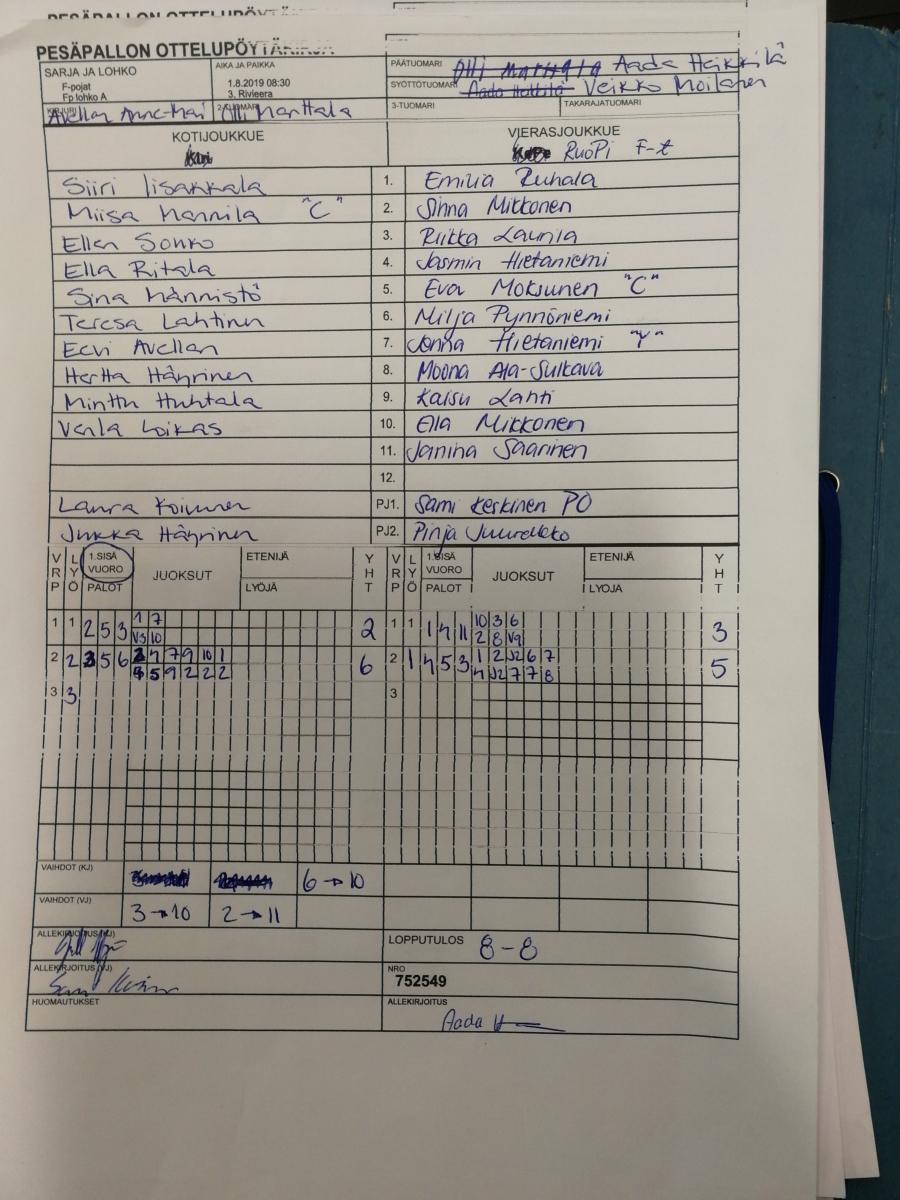 PESÄPALLON OTTELUPÖYTÄKIRJA
SARJA JA LOHKO
F-pojat
Fp lohko A
AIKA JA PAIKKA
1.8.2019 08:30
3. Rivieera
PÄÄTUOMARI Aada Heikkilä
SYÖTTÖTUOMARI Veikko Moilanen
KIRJURI Avellan Anne-Mai
2-TUOMARI Olli Marttala
3-TUOMARI
TAKARAJATUOMARI
KOTIJOUKKUE
VIERASJOUKKUE
RuoPi F-t
Siiri Iisakkala 1. Emilia Ruhala
Miisa Hannila "C" 2. Sinna Mikkonen
Ellen Sonko 3. Riikka Launia
Ella Ritala 4. Jasmin Hietaniemi
Sina Männistö 5. Eva Moksunen "C"
Teresa Lahtinen 6. Milja Pynnöniemi
Eevi Avellan 7. Jonna Hietaniemi "Y"
Hertta Häyrinen 8. Moona Ala-Sulkava
Minttu Huhtala 9. Kaisu Lahti
Venla Loikas 10. Ella Mikkonen
11. Janina Saarinen
12.
Laura Koivunen PJ1. Sami Keskinen PÖ
Jukka Häyrinen PJ2. Pinja
VRP LYÖ 1.SISÄ VUORO PALOT JUOKSUT ETENIJÄ LYÖJÄ YHT VRP LYÖ 1.SISÄ VUORO PALOT JUOKSUT ETENIJÄ LYÖJÄ YHT
1 1 2 5 3 1 7 2 1 1 1 4 11 10 3 6 3
V3 10 2 8 V9
2 2 3 5 6 3 4 7 9 10 1 6 2 1 4 5 3 1 2 J2 6 7 5
5 9 2 2 2 4 J2 7 7 8
3 3 3
VAIHDOT (KJ) 6→10
VAIHDOT (VJ) 3→10 2→11
ALLEKIRJOITUS (KJ)
LOPPUTULOS 8-8
ALLEKIRJOITUS (VJ)
NRO
752549
HUOMAUTUKSET
ALLEKIRJOITUS
Aada H